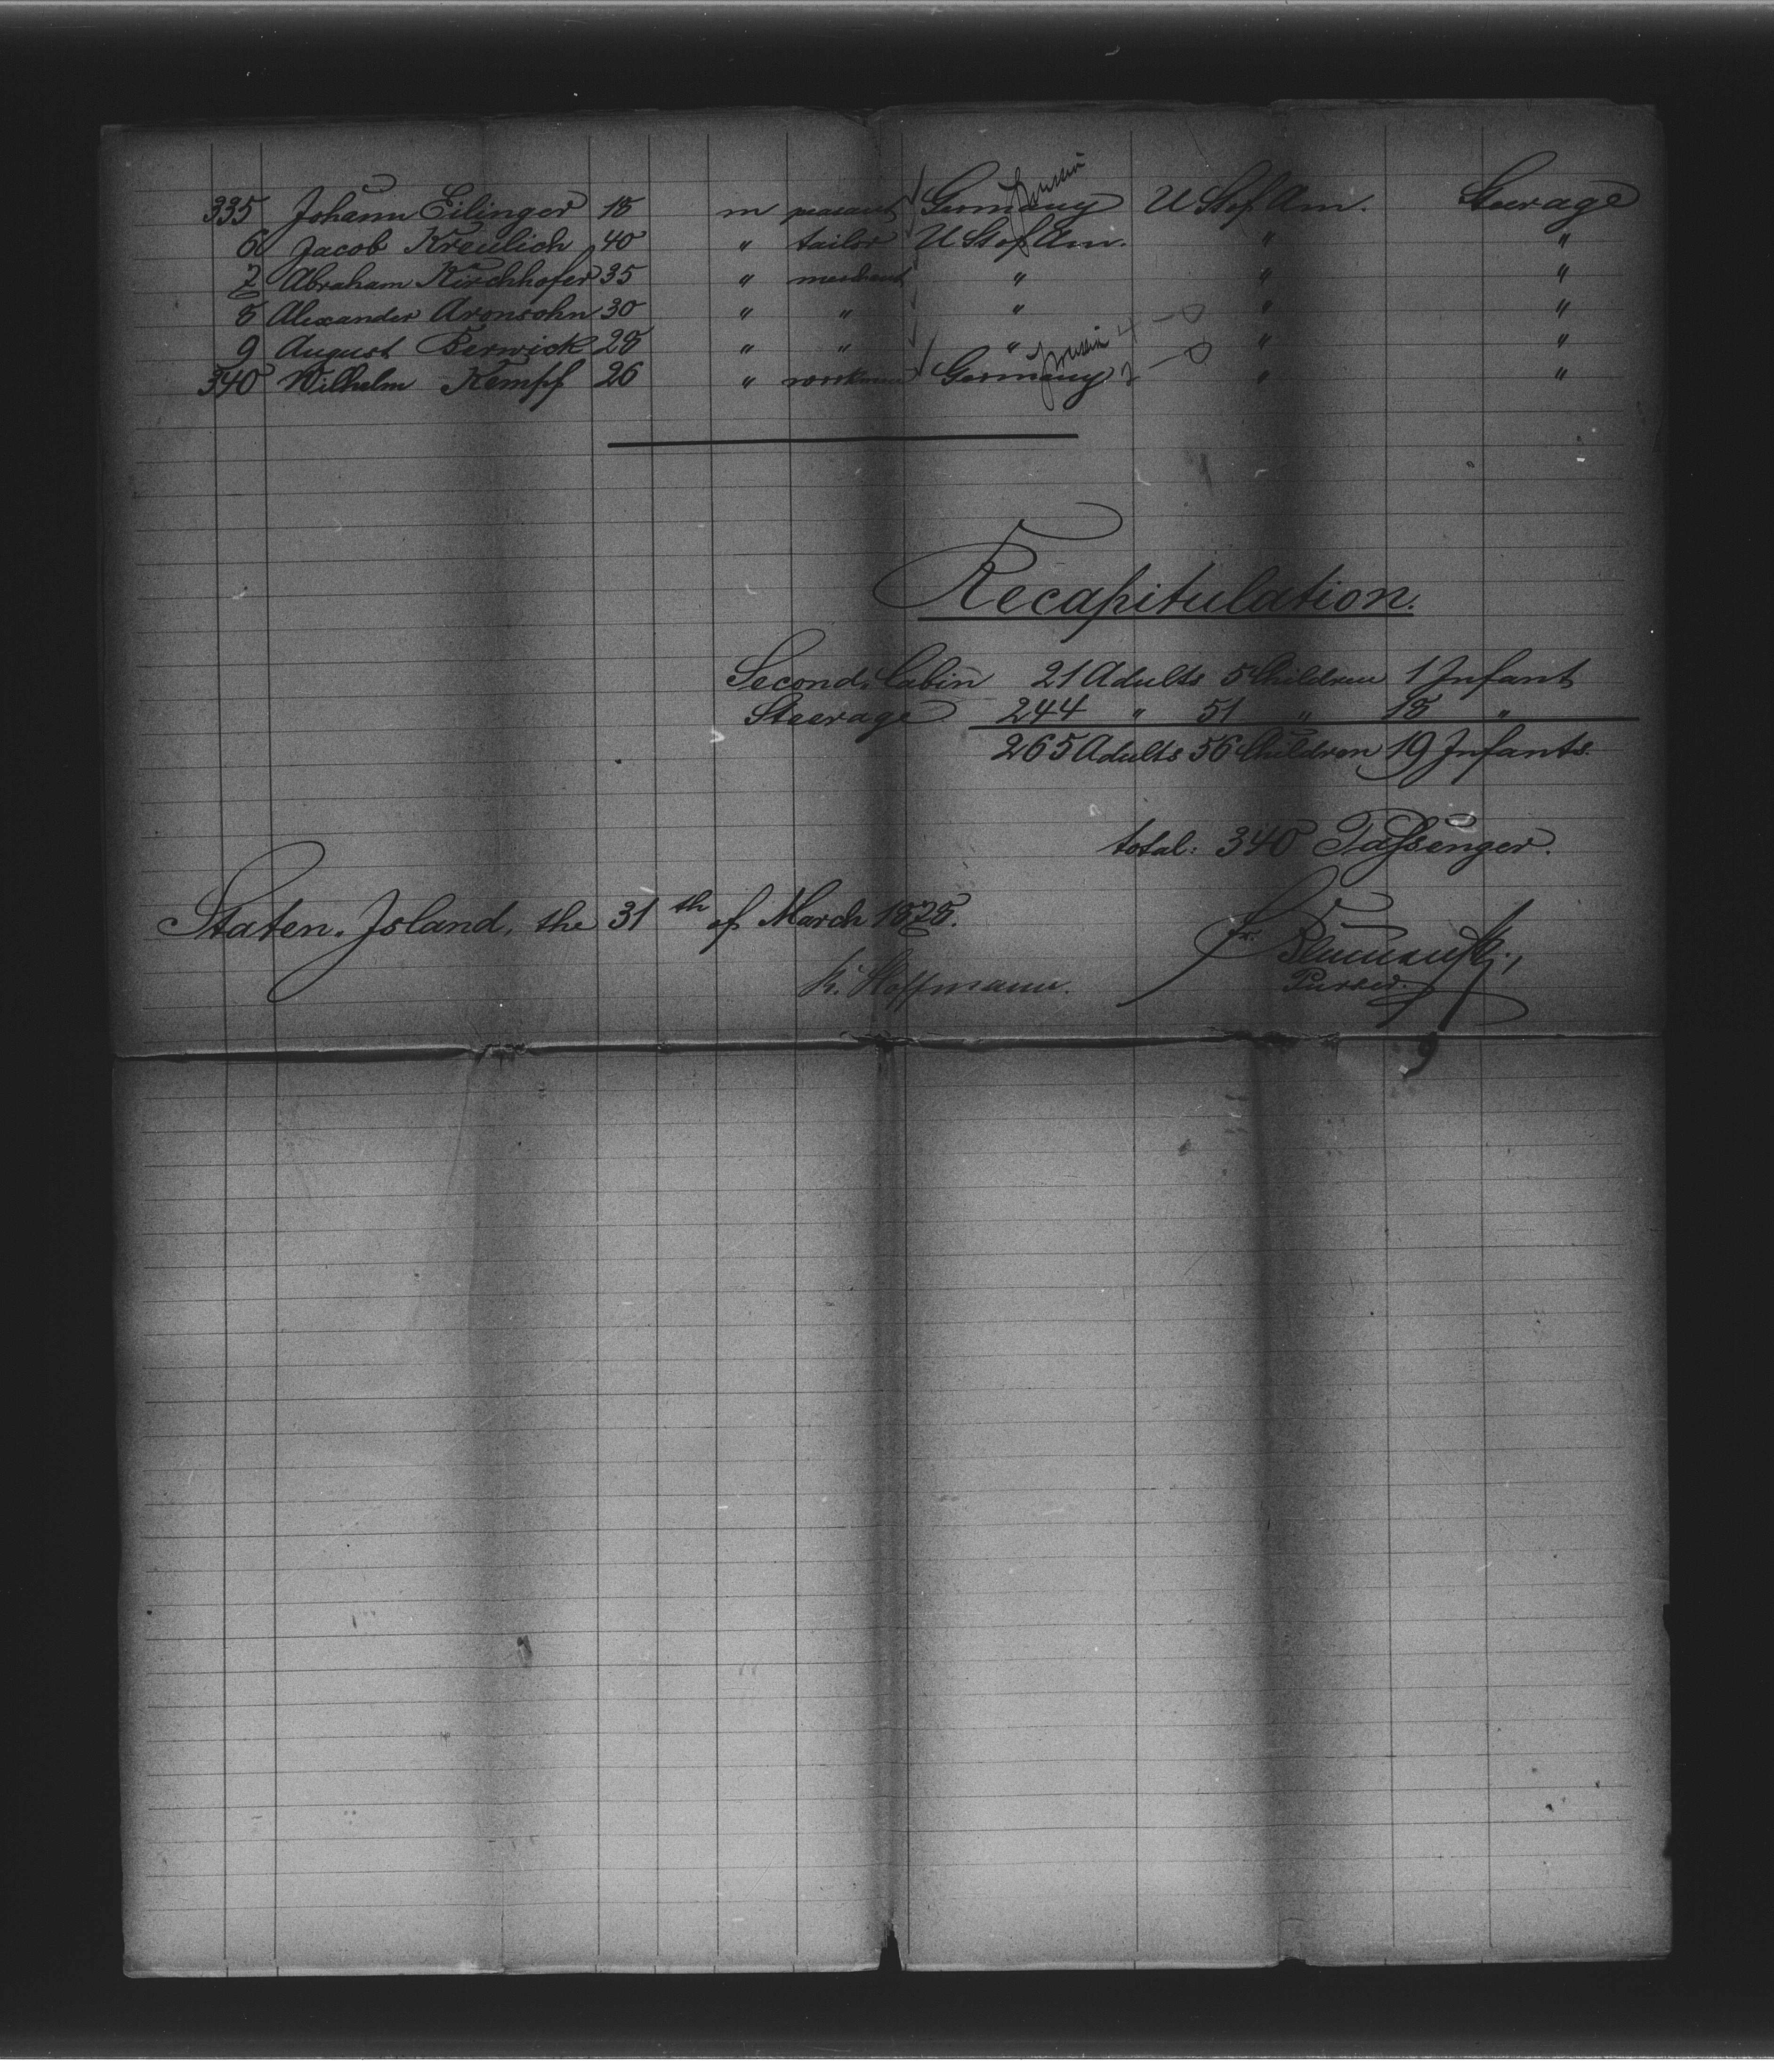 335 Johann Eilinger 18 m peasant Germany Prussia U St of Am. Steerage
6 Jacob Kreulich 40 " tailor U St of Am. " "
7 Abraham Kirchhofer 35 " merchant " " "
8 Alexander Aronsohn 30 " " " " "
9 August Berwick 28 " " " " "
340 Wilhelm Kempf 26 " workman Germany Prussia " "
Recapitulation.
Second. Cabin 21 Adults 5 Children 1 Infant
Steerage 244 " 51 " 18 "
265 Adults 56 Children 19 Infants.
total: 340 Passenger.
Staten. Island, the 31th of March 1878.
K. Hoffmann.
Purser.
9